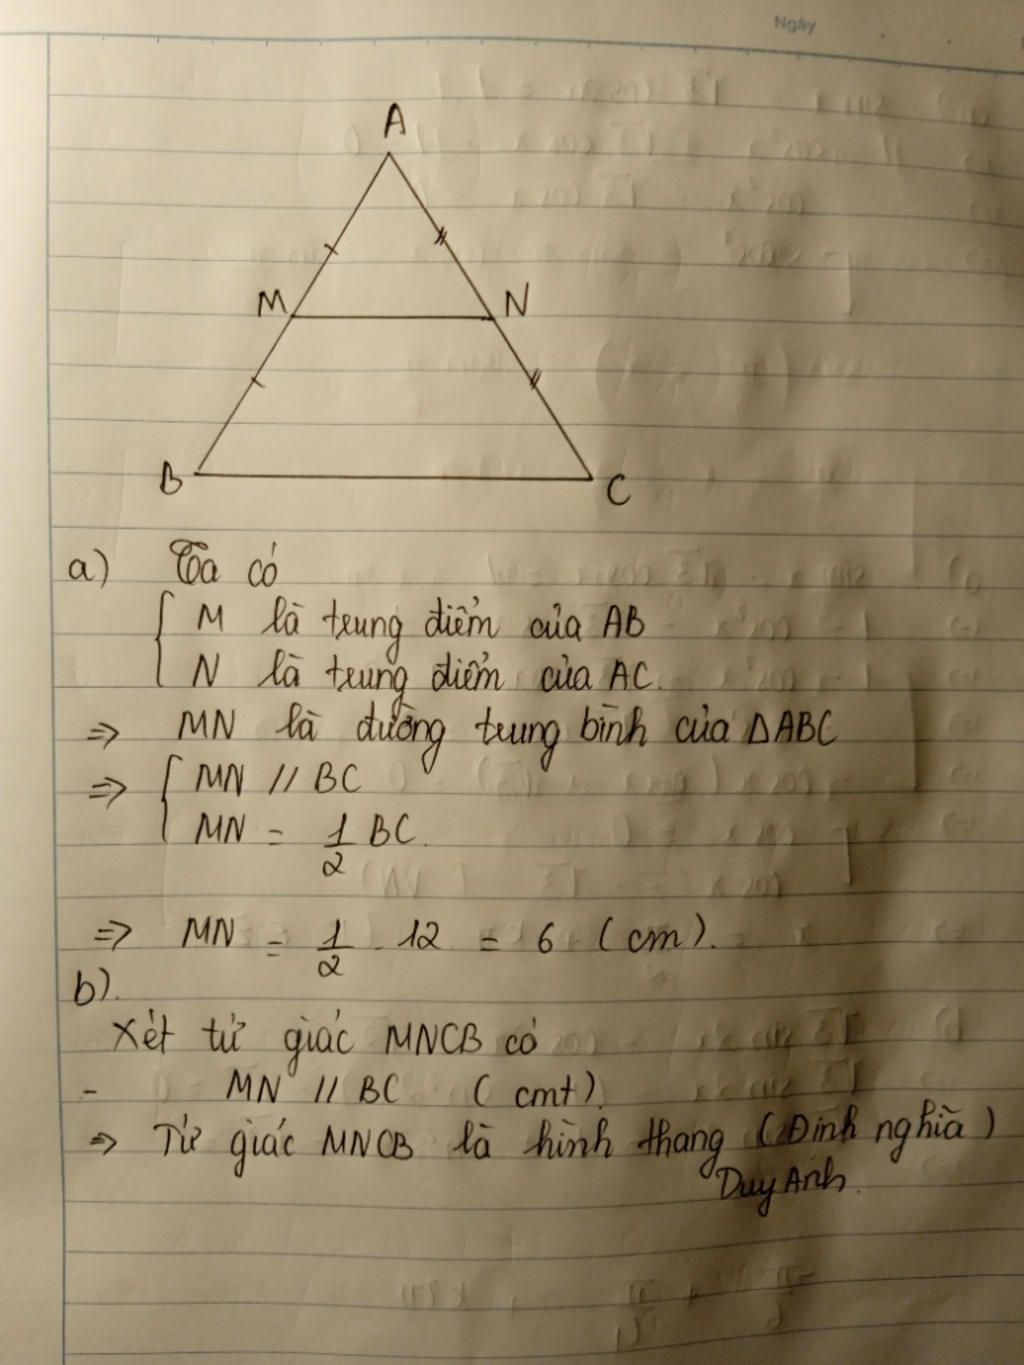 Ngày
A
M N
B C
a) Ta có
M là trung điểm của AB
N là trung điểm của AC.
=> MN là đường trung bình của ΔABC
=> MN // BC
MN = 1/2 BC.
=> MN = 1/2 . 12 = 6 (cm).
b).
Xét tứ giác MNCB có
- MN // BC (cmt).
=> Tứ giác MNCB là hình thang (Định nghĩa)
Duy Anh.